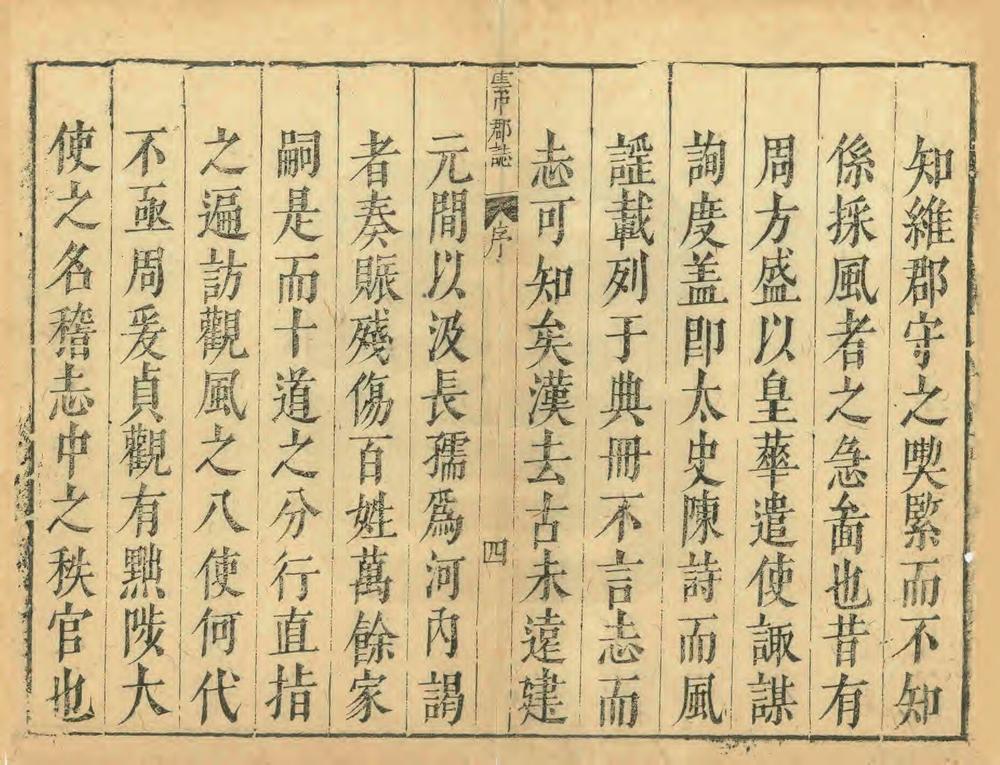 知維郡守之喫緊而不知
係採風者之急啚也昔有
周方盛以皇華遣使諏謀
詢度盖即太史陳詩而風
謡載列于典冊不言志而
志可知矣漢去古未遠建
雲中郡誌 序 四
元間以汲長孺爲河內謁
者奏賑殘傷百姓萬餘家
嗣是而十道之分行直指
之遍訪觀風之八使何代
不亟周爰貞觀有黜陟大
使之名稽志中之秩官也